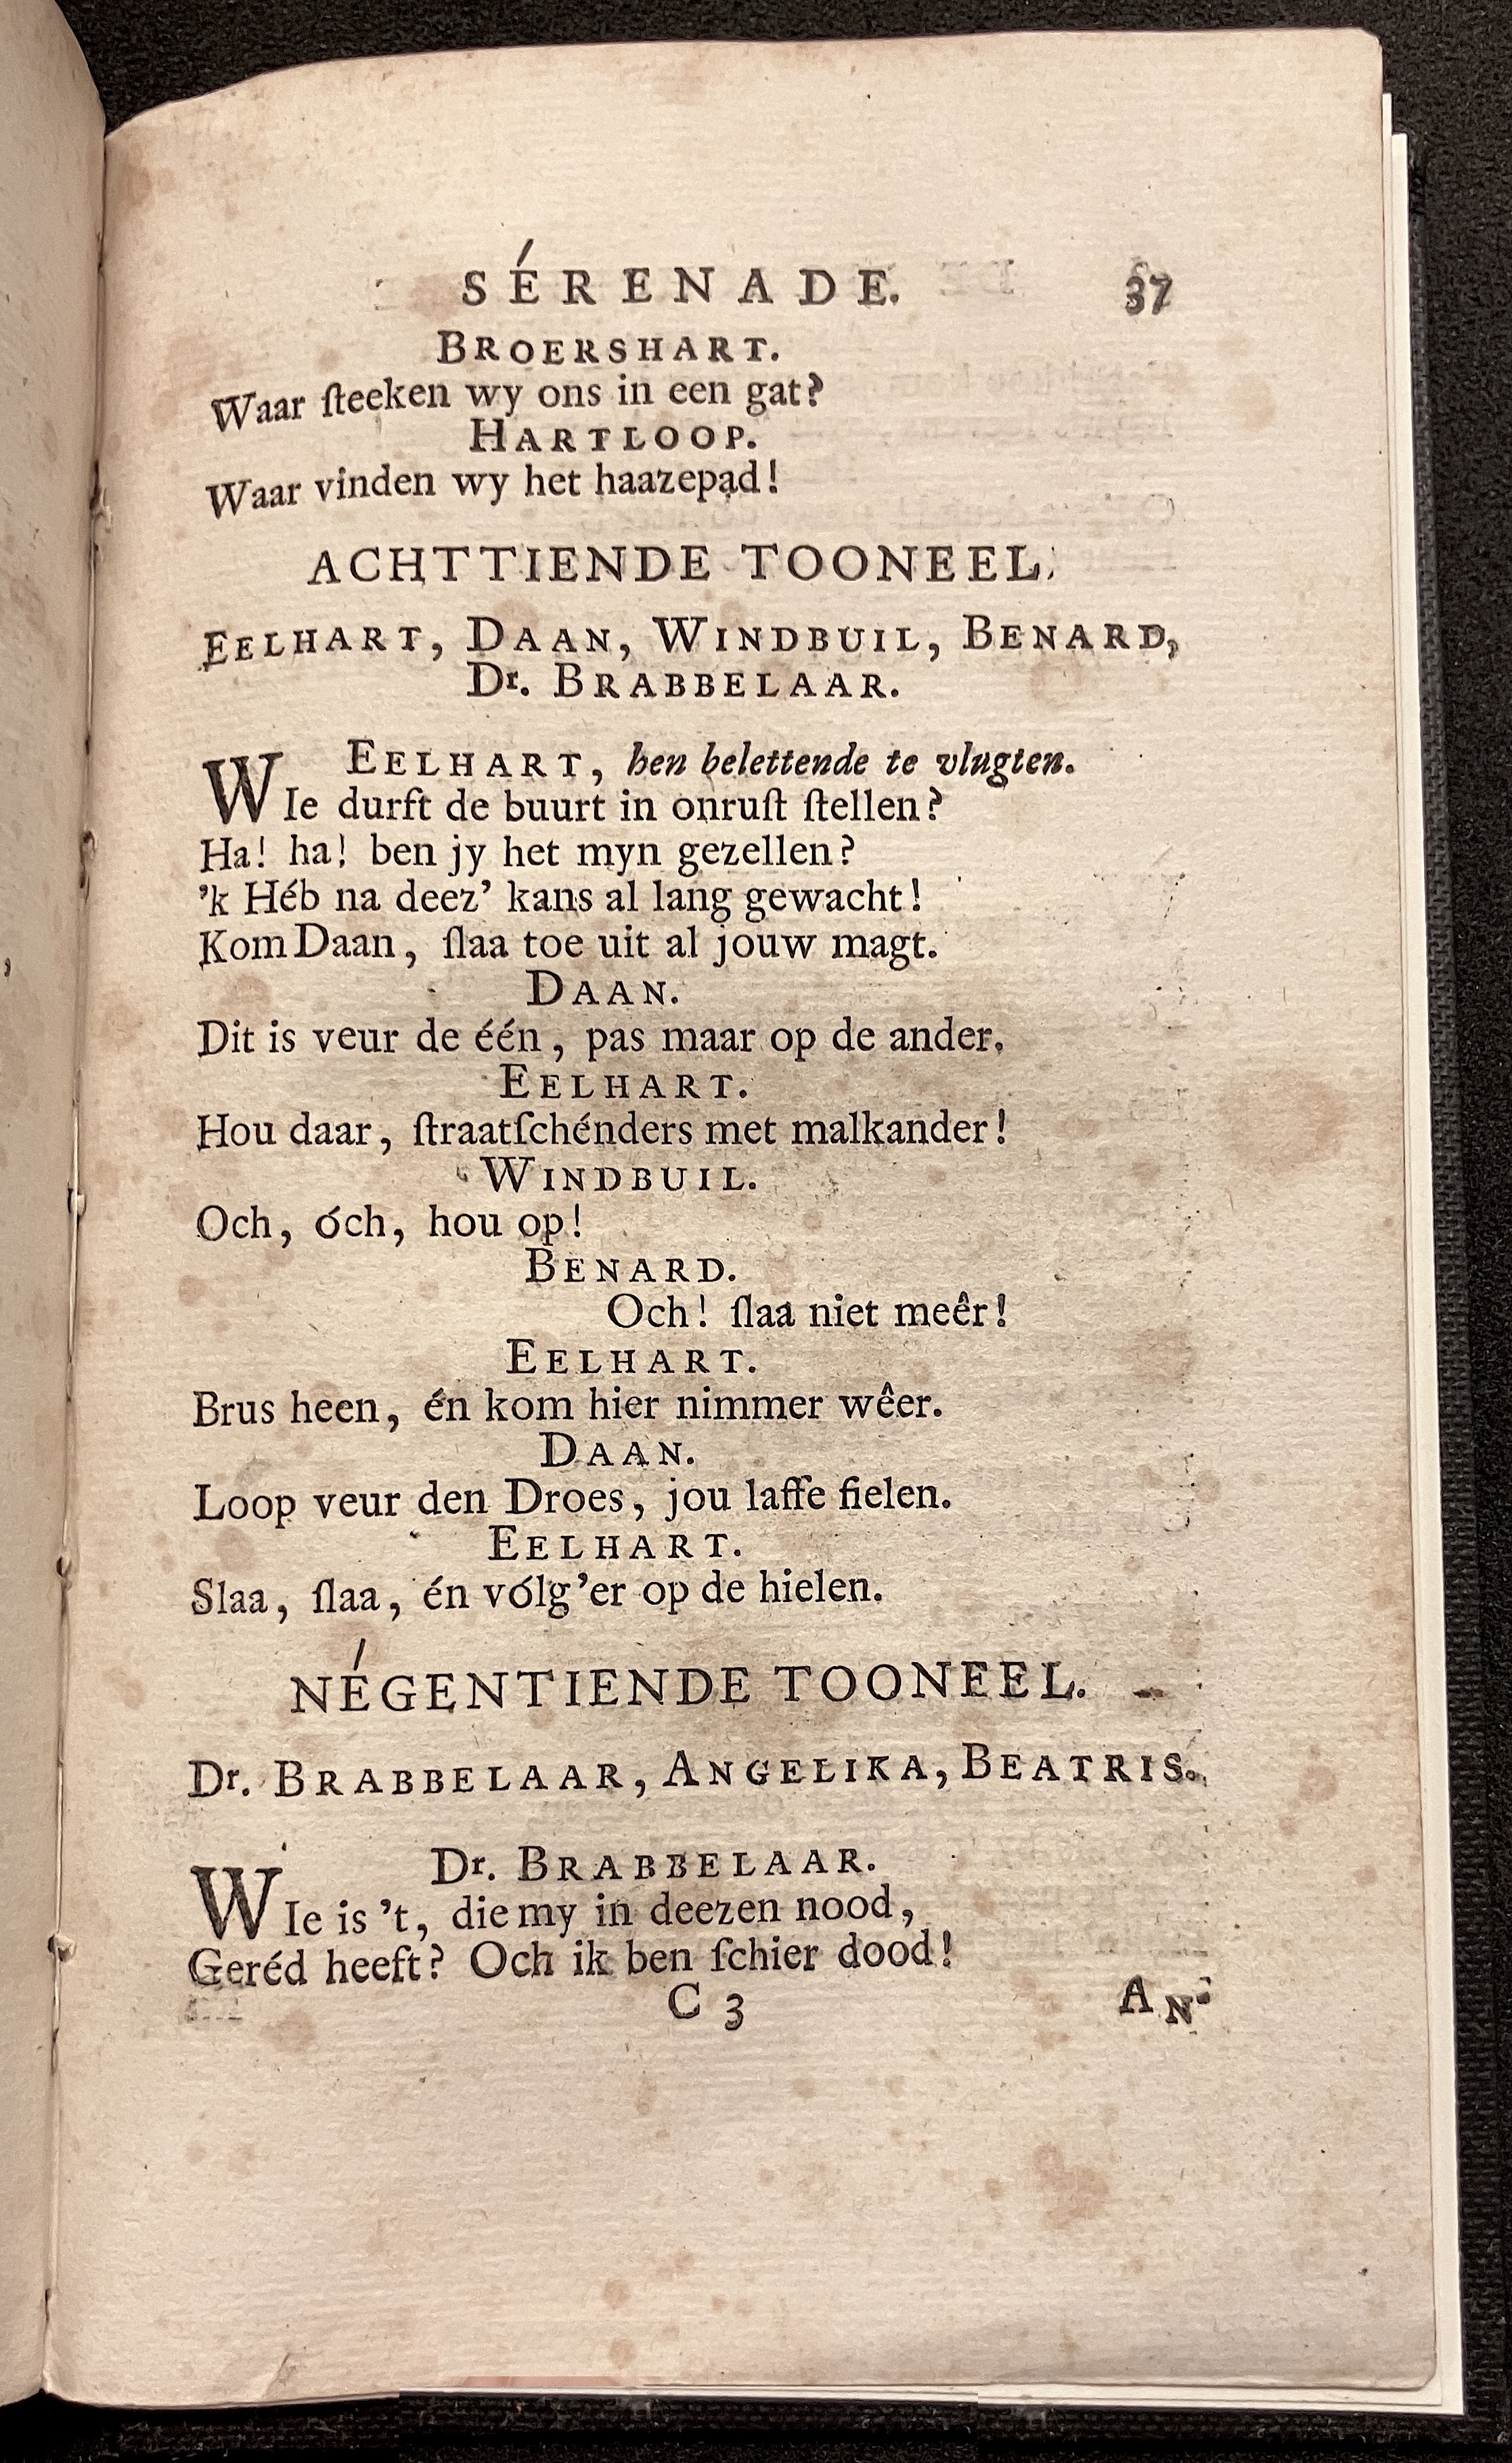 SÉRENADE. 37
BROERSHART.
Waar ſteeken wy ons in een gat?
HARTLOOP.
Waar vinden wy het haazepad!
ACHTTIENDE TOONEEL.
EELHART, DAAN, WINDBUIL, BENARD,
Dr. BRABBELAAR.
EELHART, hen belettende te vlugten.
WIe durft de buurt in onruſt ſtellen?
Ha! ha! ben jy het myn gezellen?
’k Héb na deez’ kans al lang gewacht!
Kom Daan, ſlaa toe uit al jouw magt.
DAAN.
Dit is veur de één, pas maar op de ander.
EELHART.
Hou daar, ſtraatſchénders met malkander!
WINDBUIL.
Och, óch, hou op!
BENARD.
Och! ſlaa niet meêr!
EELHART.
Brus heen, én kom hier nimmer wêer.
DAAN.
Loop veur den Droes, jou laffe fielen.
EELHART.
Slaa, ſlaa, én vólg’er op de hielen.
NÉGENTIENDE TOONEEL.
Dr. BRABBELAAR, ANGELIKA, BEATRIS.
Dr. BRABBELAAR.
WIe is ’t, die my in deezen nood,
Geréd heeft? Och ik ben ſchier dood!
C 3 AN-